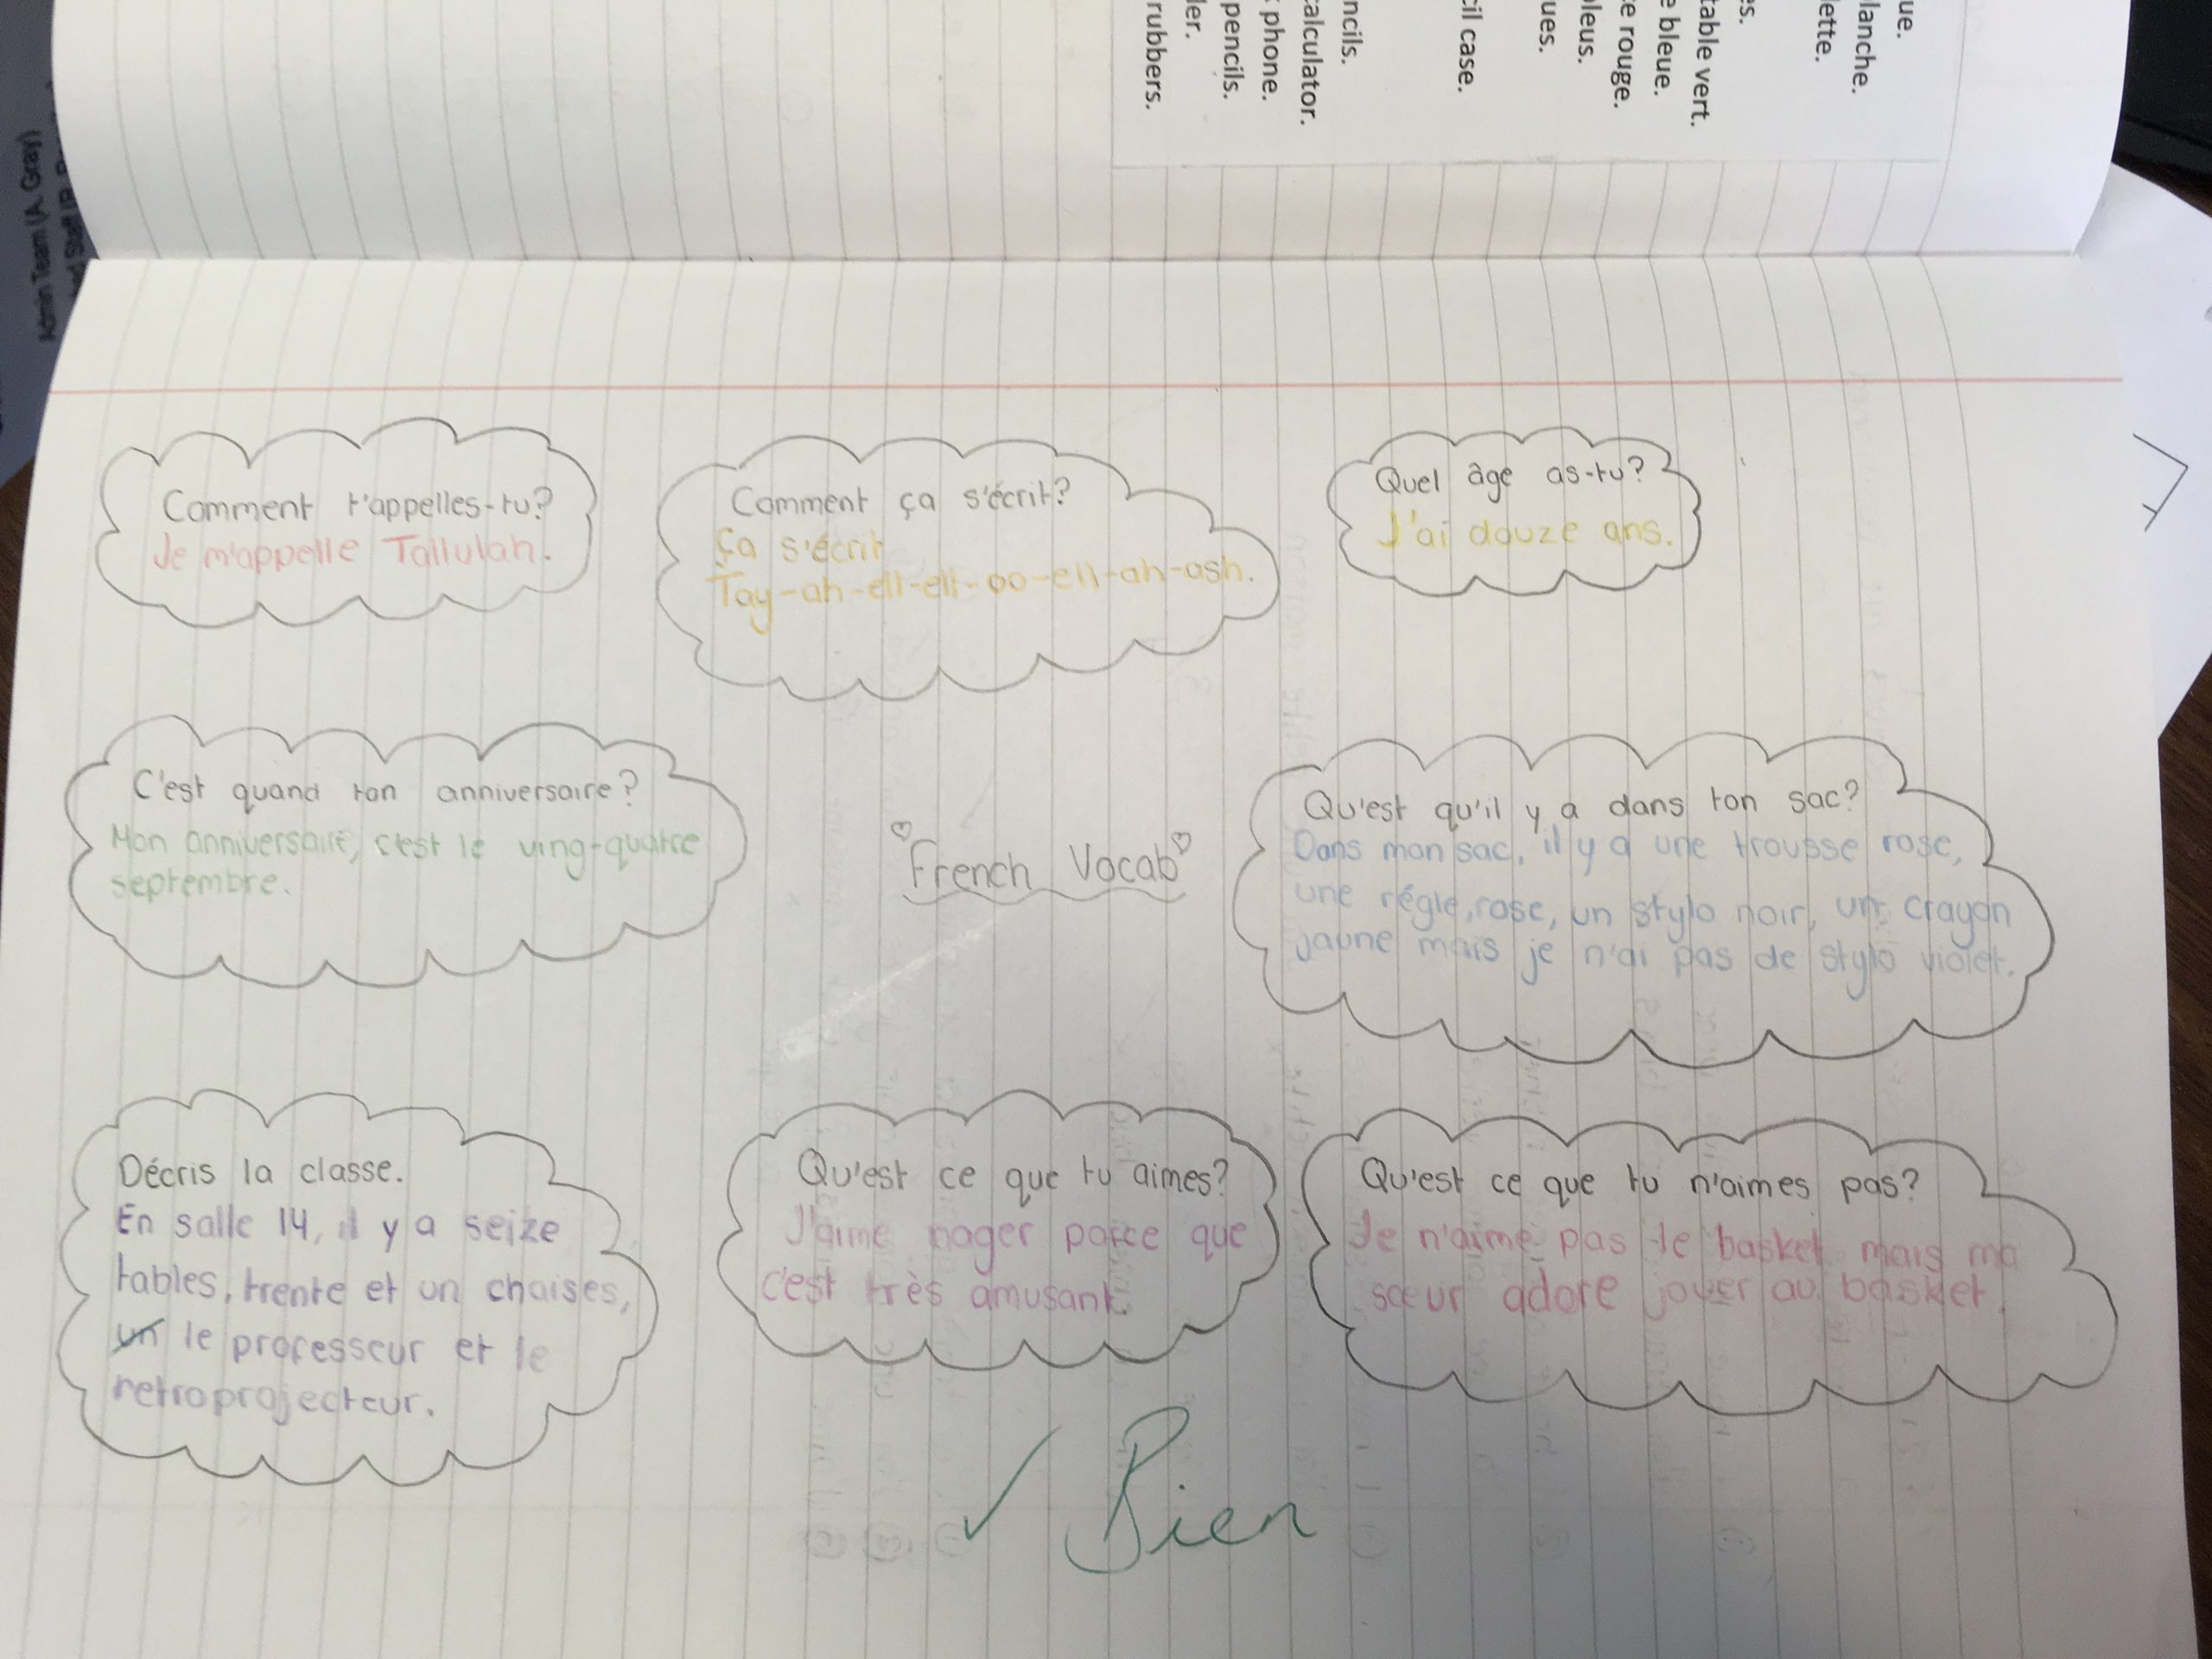 rubbers.
ler.
pencils.
phone.
calculator.
ncils.
cil case.
ues.
bleus.
e rouge.
e bleue.
table vert.
es.
lette.
lanche.
ue.
Comment t'appelles-tu?
Je m'appelle Tallulah.
Comment ça s'écrit?
Ça s'écrit
Tay-ah-ell-ell-oo-ell-ah-ash.
Quel âge as-tu?
J'ai douze ans.
C'est quand ton anniversaire?
Mon anniversaire, c'est le ving-quatre
septembre.
French Vocab
Qu'est qu'il y a dans ton sac?
Dans mon sac, il y a une trousse rose,
une régle, rose, un stylo noir, un crayon
jaune mais je n'ai pas de stylo violet.
Décris la classe.
En salle 14, il y a seize
tables, trente et un chaises,
un le professeur et le
retroprojecteur.
Qu'est ce que tu aimes?
J'aime nager parce que
c'est très amusant.
Qu'est ce que tu n'aimes pas?
Je n'aime pas le basket mais ma
sœur adore jouer au basket.
✓ Bien